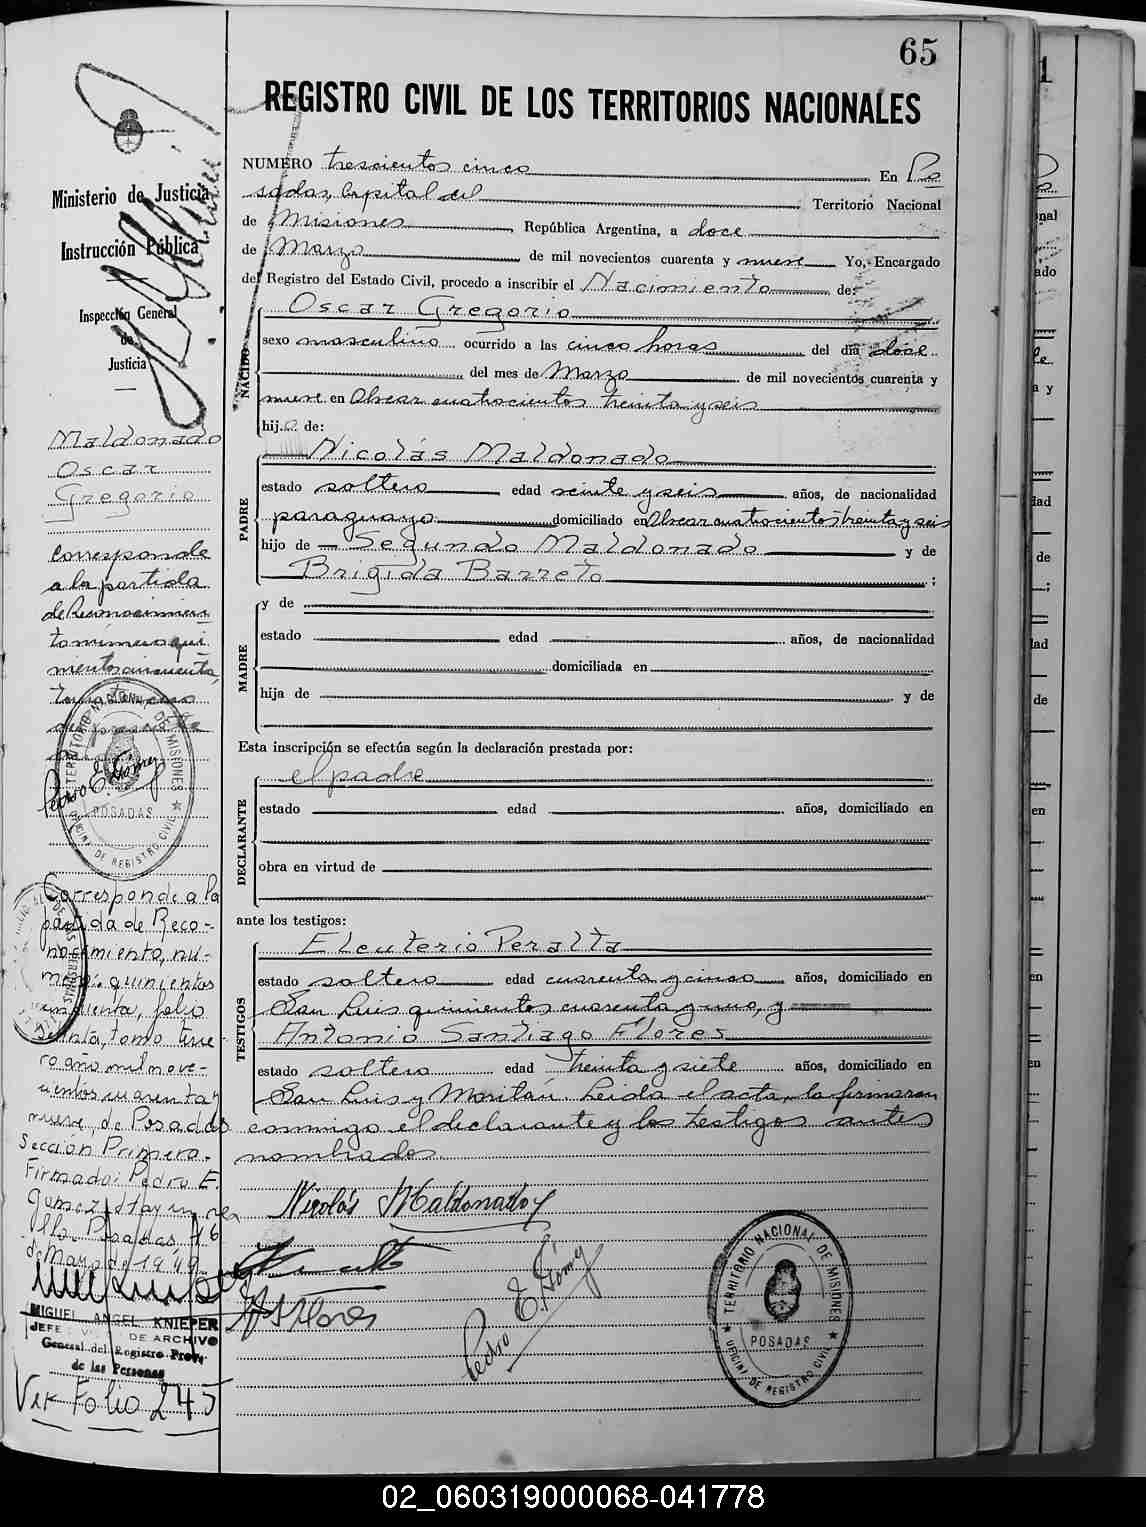 65
REGISTRO CIVIL DE LOS TERRITORIOS NACIONALES
Ministerio de Justicia
Instrucción Pública
Inspección General
de
Justicia
Maldonado
Oscar
Gregorio
corresponde
a la partida
de Reconocimien
to número qui
nientos cincuenta,
Pedro E. Gómez
TERRITORIO NACIONAL DE MISIONES
POSADAS
OFICINA DE REGISTRO CIVIL
Corresponde a la
partida de Reco-
nocimiento, nú-
mero: quinientos
cincuenta, folio
tomo terce-
ro año mil nove-
cientos cuarenta y
nueve, de Posadas
Sección Primera.
Firmado: Pedro E.
Gomez. Hay un se
llo. Posadas, 16
de Marzo de 1949
MIGUEL ANGEL KNIEPER
JEFE DE ARCHIVO
General del Registro Prov.
de las Personas
Ver Folio 245
NUMERO trescientos cinco En Po
sadas, Capital del Territorio Nacional
de Misiones, República Argentina, a doce
de Marzo de mil novecientos cuarenta y nueve Yo, Encargado
del Registro del Estado Civil, procedo a inscribir el Nacimiento de:
NACIDO
Oscar Gregorio
sexo masculino ocurrido a las cinco horas del día doce
del mes de Marzo de mil novecientos cuarenta y
nueve en Alvear cuatrocientos treinta y seis
hijo de:
PADRE
Nicolás Maldonado
estado soltero edad veinte y seis años, de nacionalidad
paraguayo domiciliado en Alvear cuatrocientos treinta y seis
hijo de Segundo Maldonado y de
Brígida Barreto ;
MADRE
y de
estado edad años, de nacionalidad
domiciliada en
hija de y de
Esta inscripción se efectúa según la declaración prestada por:
DECLARANTE
el padre
estado edad años, domiciliado en
obra en virtud de
ante los testigos:
TESTIGOS
Eleuterio Peralta
estado soltero edad cuarenta y cinco años, domiciliado en
San Luis quinientos cuarenta y uno, y
Antonio Santiago Flores
estado soltero edad treinta y siete años, domiciliado en
San Luis y Moritán. Leída el acta, la firmaron
conmigo el declarante y los testigos antes
nombrados.
Nicolás Maldonado
A S Flores
Pedro E. Gómez
TERRITORIO NACIONAL DE MISIONES
POSADAS
OFICINA DE REGISTRO CIVIL
02_060319000068-041778